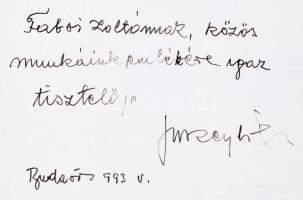 Fabói Zoltánnak, közös
munkáink emlékére igaz
tisztelője
Budaörs 993 V.